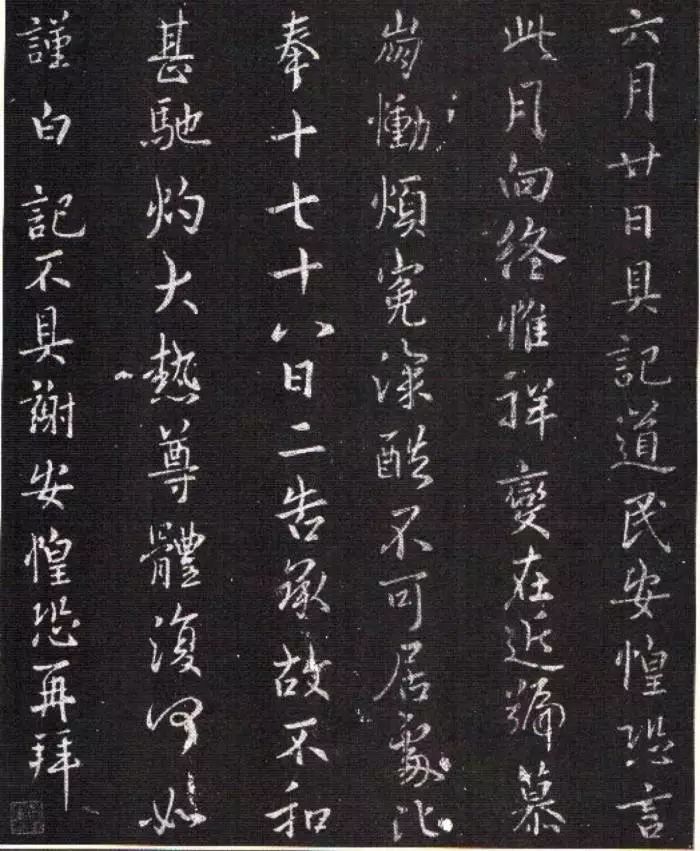 六月廿日具記道民安惶恐言
此月向終惟祥變在近號慕
崩慟煩寃深酷不可居處比
奉十七十八日二告承故不和
甚馳灼大熱尊體復何如
謹白記不具謝安惶恐再拜